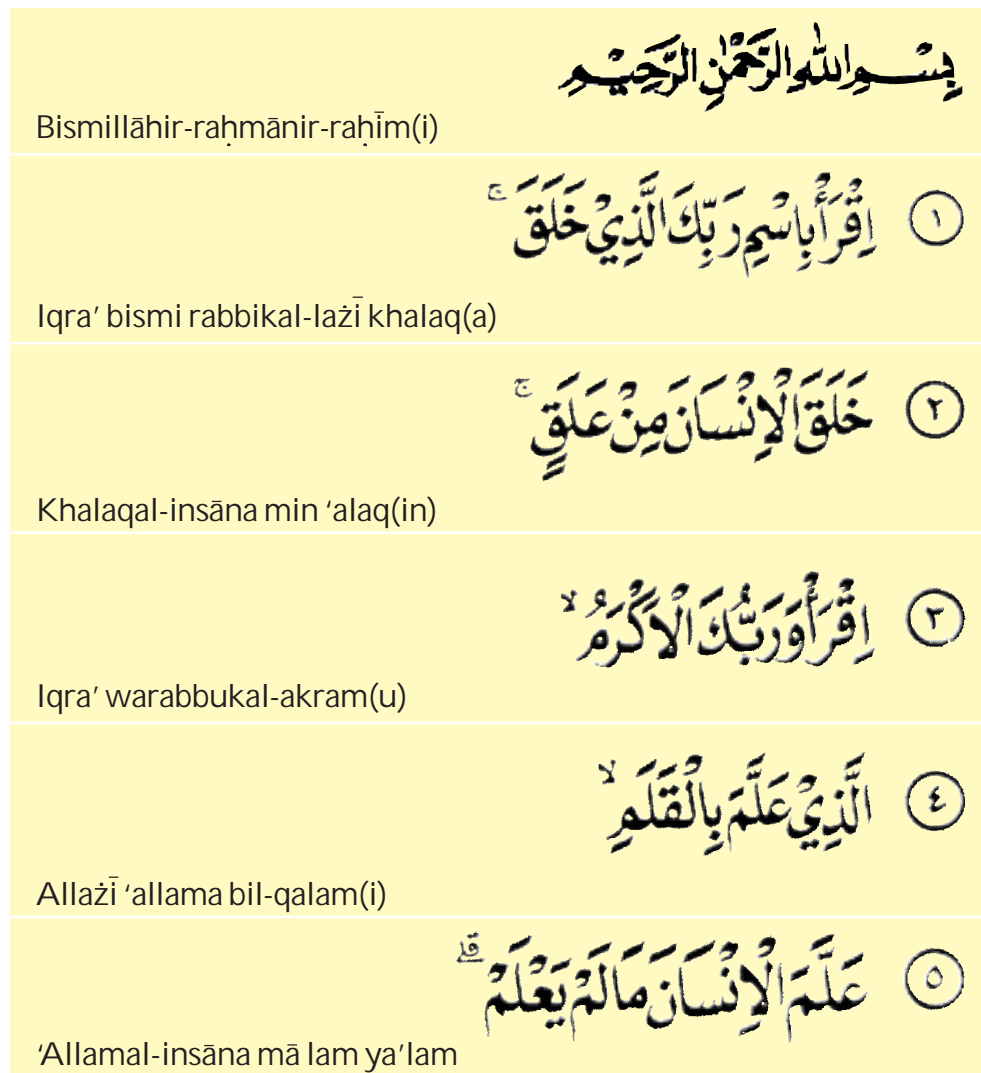 بِسْمِ اللهِ الرَّحْمٰنِ الرَّحِيْمِ
Bismillāhir-raḥmānir-raḥīm(i)
١ اِقْرَأْ بِاسْمِ رَبِّكَ الَّذِيْ خَلَقَ ۚ
Iqra’ bismi rabbikal-lażī khalaq(a)
٢ خَلَقَ الْاِنْسَانَ مِنْ عَلَقٍ ۚ
Khalaqal-insāna min ‘alaq(in)
٣ اِقْرَأْ وَرَبُّكَ الْاَكْرَمُ ۙ
Iqra’ warabbukal-akram(u)
٤ الَّذِيْ عَلَّمَ بِالْقَلَمِ ۙ
Allażī ‘allama bil-qalam(i)
٥ عَلَّمَ الْاِنْسَانَ مَا لَمْ يَعْلَمْ ۗ
‘Allamal-insāna mā lam ya’lam